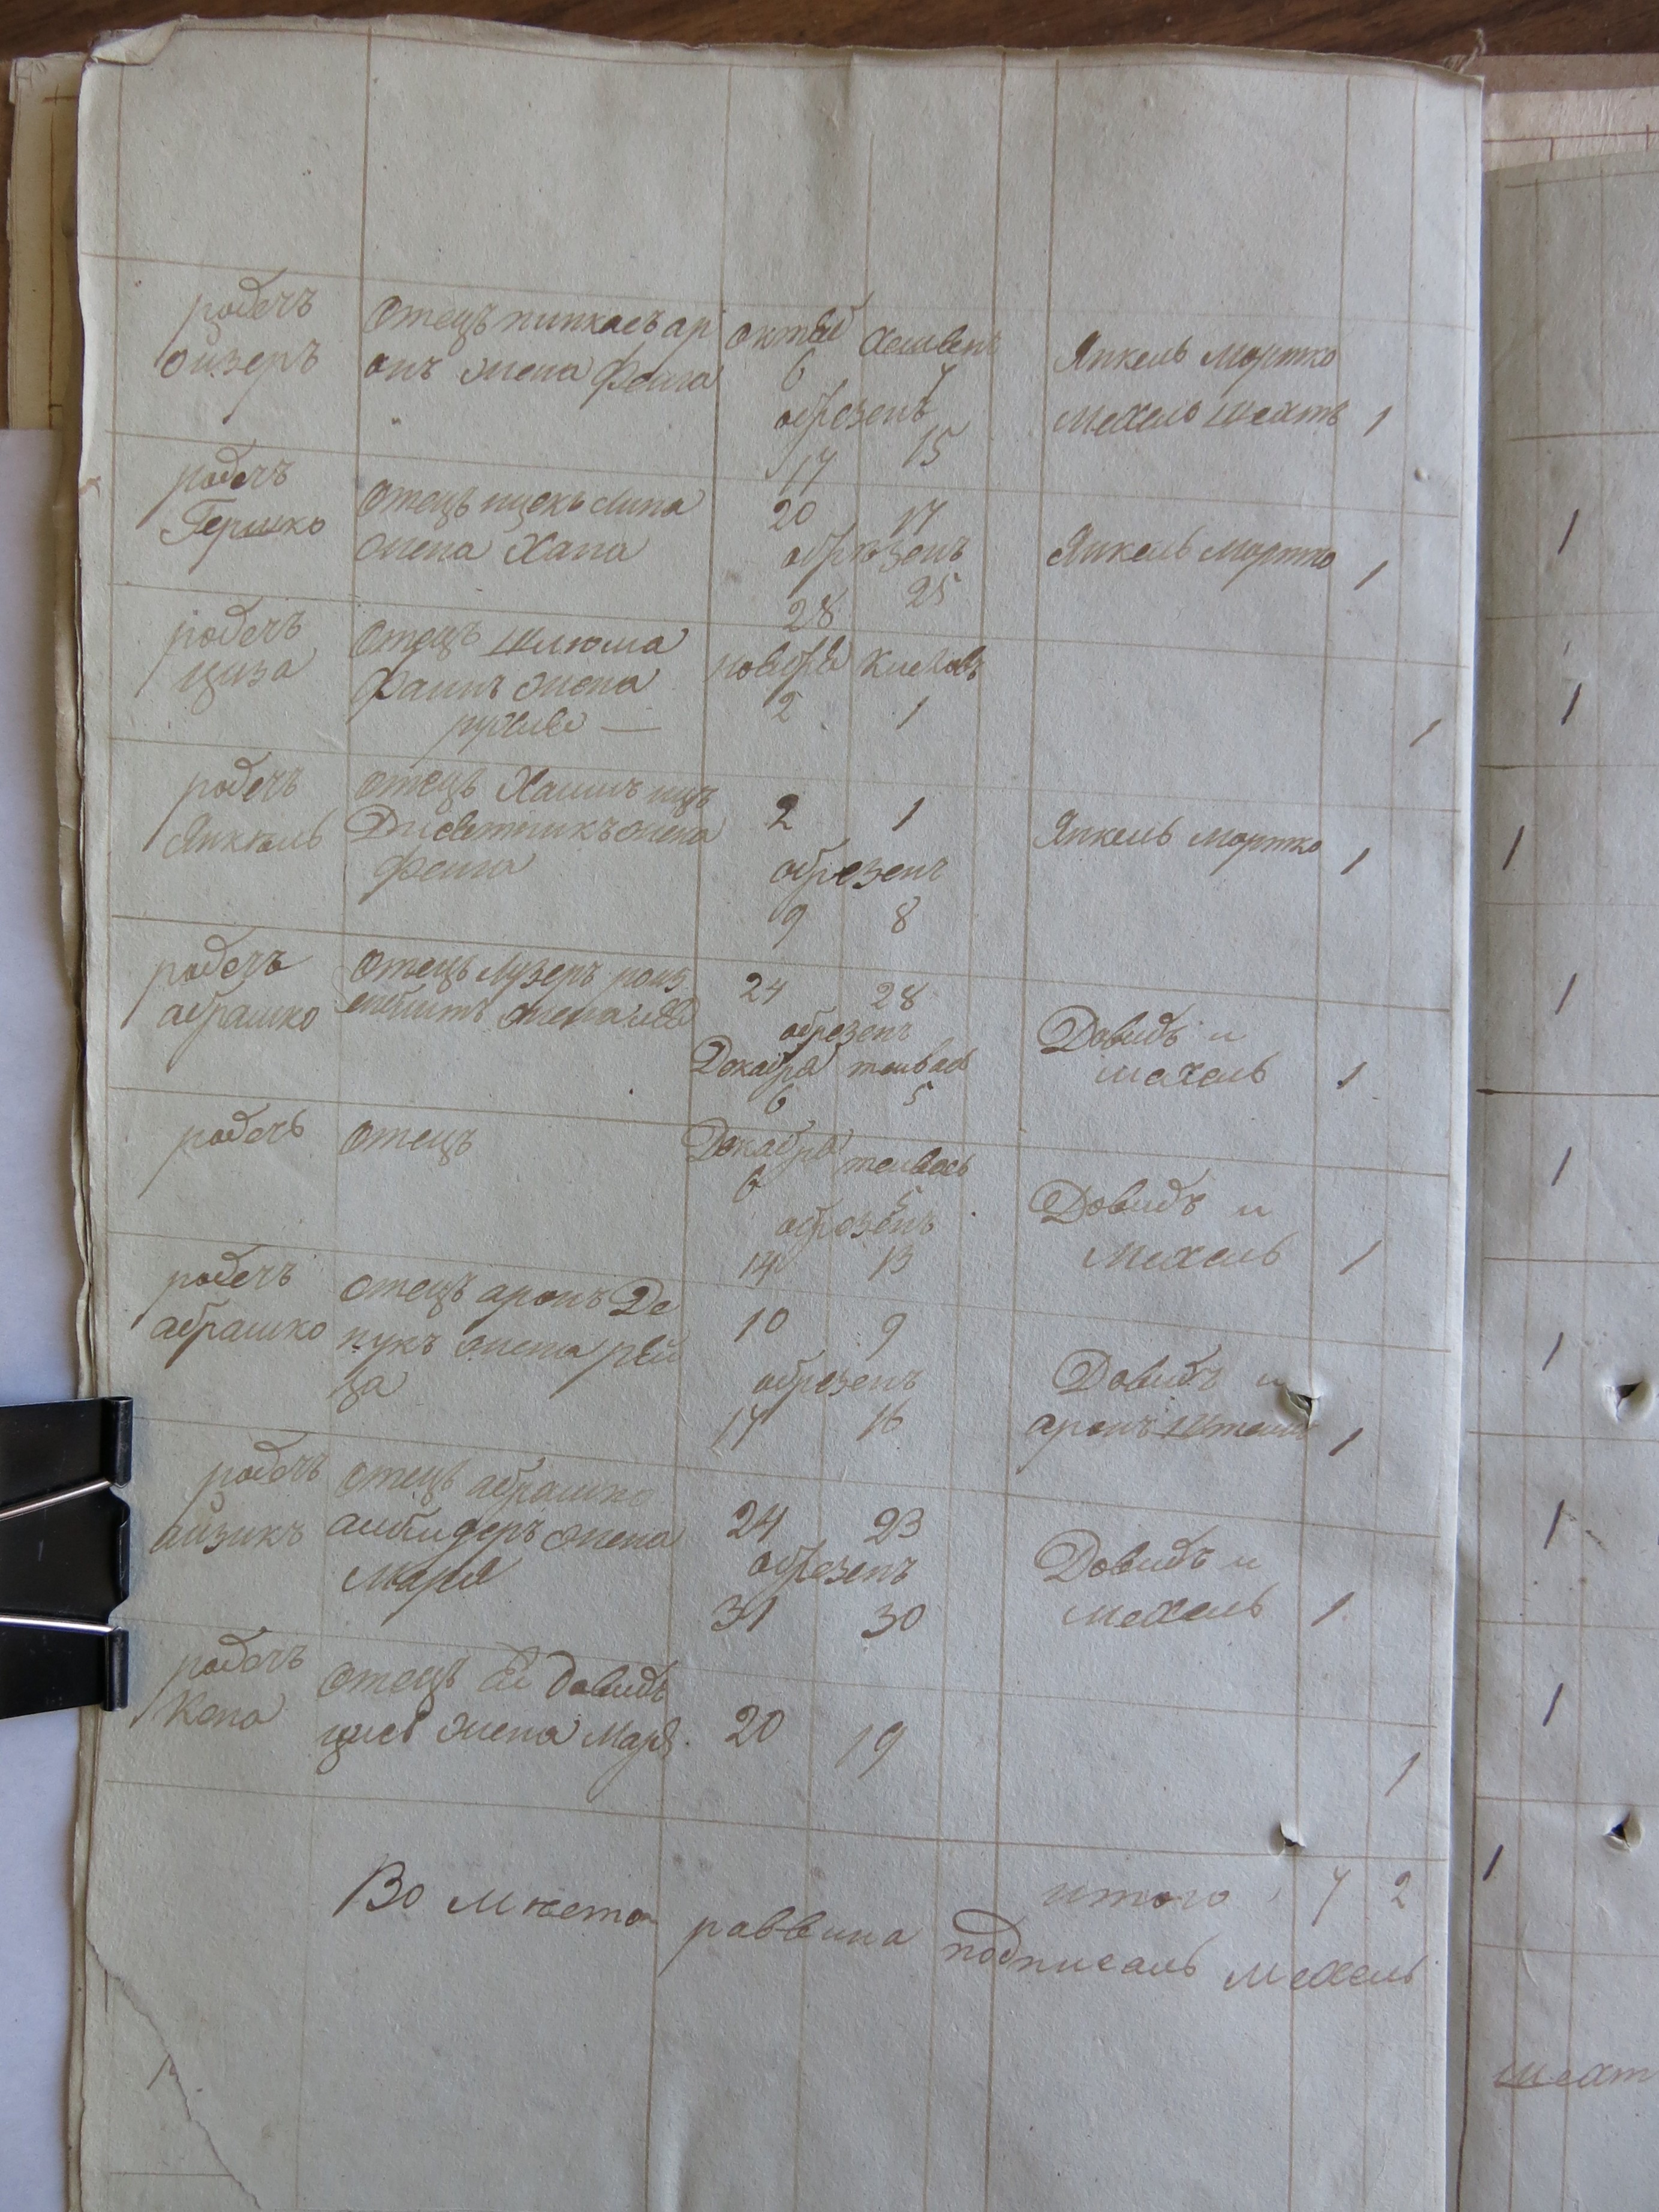 родечъ
ойзеръ
отецъ пинкасъ ар
онъ жена Фейга
октяб Хешвень
6 7
обрезенъ
14 15
Янкель Мортко
Мехель шехтъ 1
родечъ
Гершко
отецъ ицекъ липа
жена Хана
20 17
обрѣзенъ
28 25
Янкель Мортко 1
родечъ
циза
отецъ шлюма
Фаинъ жена
рухля —
новебря Кислевъ
2 1
1
родечъ
Янкѣль
отецъ Хаимъ ицъ
жена
Фейга
2 1
обрезенъ
9 8
Янкель Мортко 1
родечъ
абрашко
отецъ Лузеръ роиз
жена
24 28
обрезенъ
Декабря тейвесъ
6 5
Довидъ и
мехель 1
родечъ
отецъ
Декабря тейвесь
6 5
обрезенъ
14 13
Довидъ и
Мехель 1
родечъ
абрашко
отецъ аронъ Де
нукъ жена рей
за
10 9
обрезенъ
17 16
Довидъ и
аронъ 1
родечъ
айзикъ
отецъ абрашко
жена
Маря
24 23
обрезенъ
31 30
Довидъ и
мехель 1
родечъ
Кена
отецъ Довидъ
жена Маря
20 19
1
итого 7 2
Во мѣсто раввина подписаль Мехель
шехт